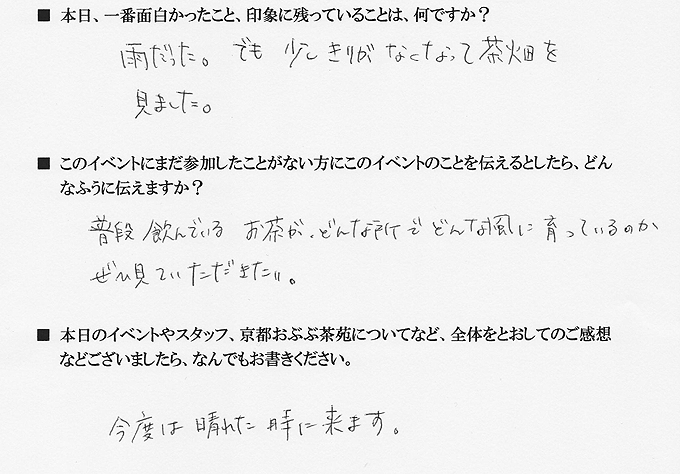 ■ 本日、一番面白かったこと、印象に残っていることは、何ですか？
雨だった。でも 少しきりがなくなって茶畑を
見ました。
■ このイベントにまだ参加したことがない方にこのイベントのことを伝えるとしたら、どん
なふうに伝えますか？
普段飲んでいる お茶が、どんな所で どんな風に育っているのか
ぜひ見ていただきたい。
■ 本日のイベントやスタッフ、京都おぶぶ茶苑についてなど、全体をとおしてのご感想
などございましたら、なんでもお書きください。
今度は晴れた時に来ます。